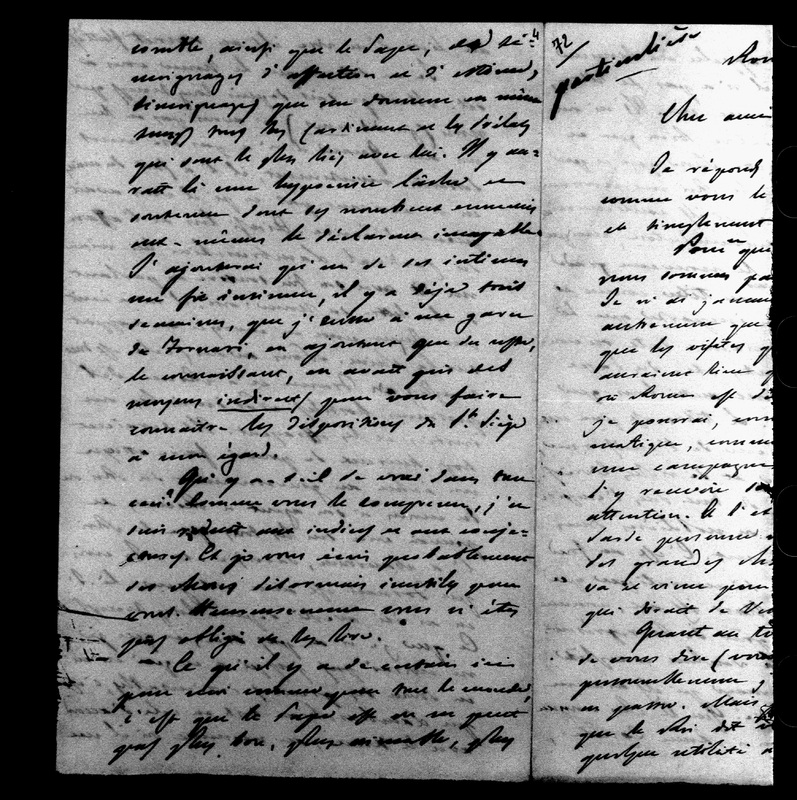 comble, ainsi que le Pape, des té-
moignages d'affection et d'estime,
témoignages que me donnent en même
temps tous les Cardinaux et les Prélats
qui sont le plus liés avec lui. Il y au-
rait là une hypocrisie lâche et
soutenue dont ses nombreux ennemis
eux-mêmes le déclarent incapable.
J'ajouterai qu'un de ses intimes
me fit insinuer, il y a déjà trois
semaines, que j'eusse à me garer
de Fornari, en ajoutant que du reste,
le connaissant, on avait pris des
moyens indirects pour vous faire
connaître les dispositions du St. Siège
à mon égard.
Qu'y a-t-il de vrai dans tout
ceci? Comme vous le comprenez, j'en
suis réduit aux indices et aux conjec-
tures. Et je vous écris probablement
des choses désormais inutiles pour
vous. Heureusement vous n'êtes
pas obligé de les lire.
Ce qu'il y a de certain ici
pour moi comme pour tout le monde,
c'est que le Pape est on ne peut
pas plus bon, plus aimable, plus
4
72
particulière
Rom
Cher ami
Je réponds
comme vous le
et simplement
Pour qui
nous sommes pa
Je n'ai jamais
autrement que
que les visites q
auraient lieu
où Rome est d
je pourrai, com
matique, comme
une campagne
d'y recevoir
attention. Je
personne
des grandes
va et vient pour
qui dirait de
Quant au
de vous dire (vous
personnellement j
se passe. Mais
que le Roi dit
quelque utilité